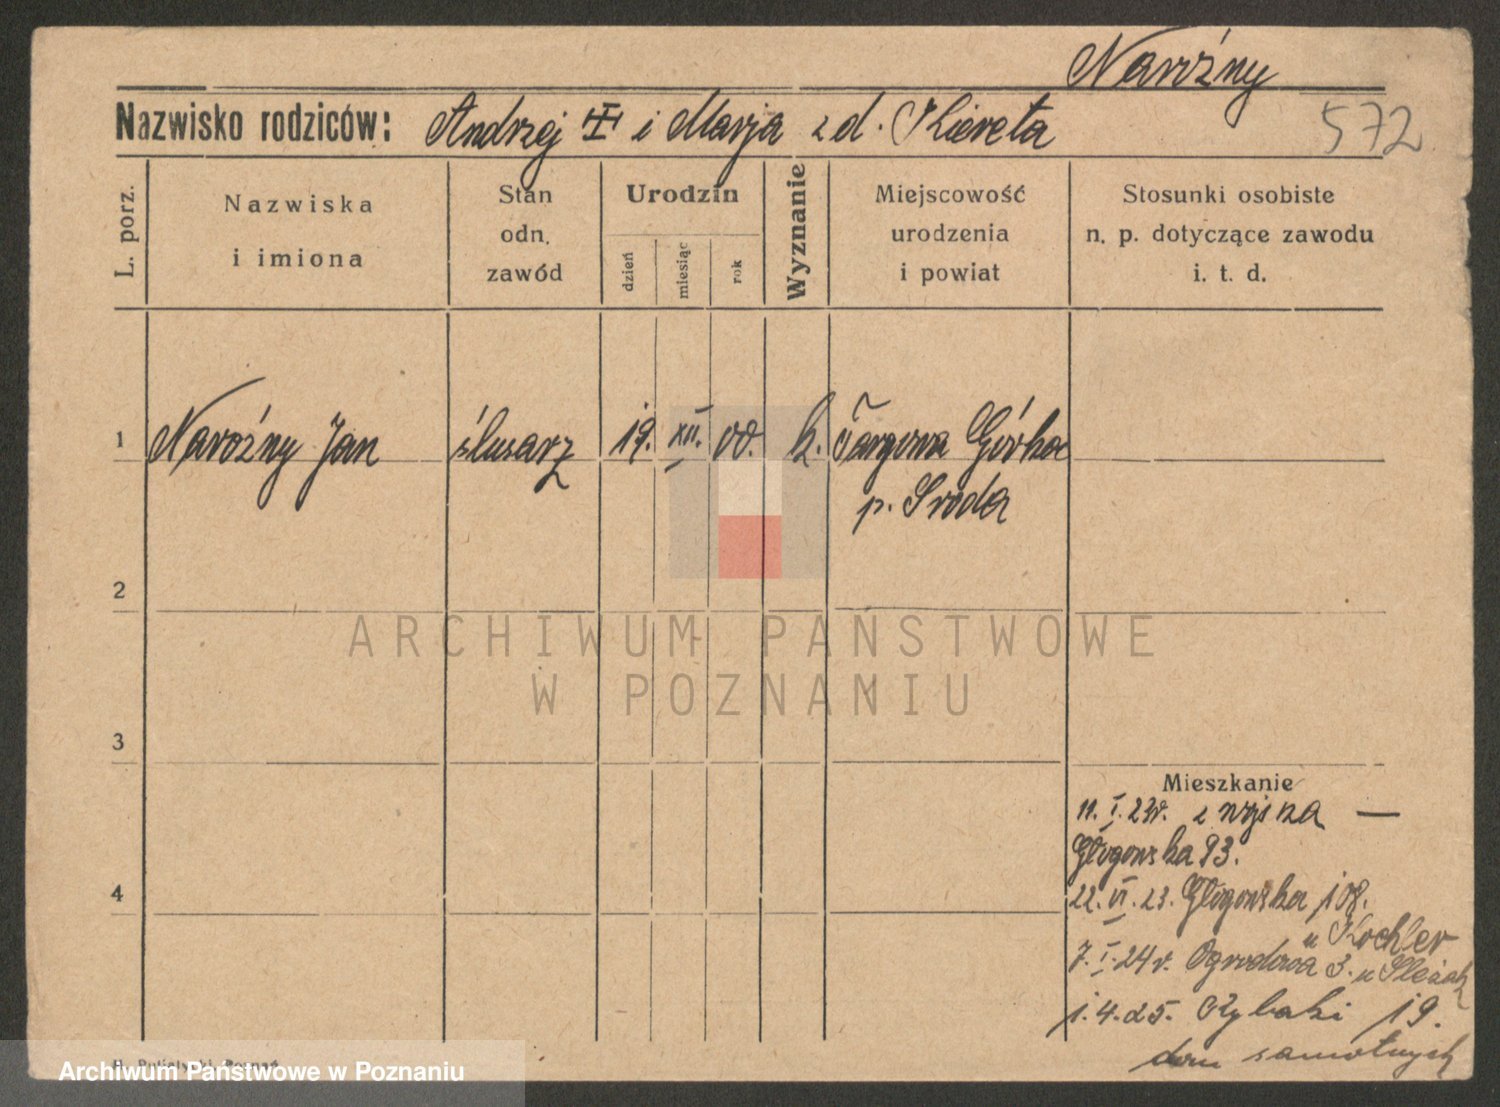 Narożny
Nazwisko rodziców: Andrzej i Marja z d. Kiereta
572
L. porz.
Nazwiska
i imiona
Stan
odn.
zawód
Urodzin
dzień
miesiąc
rok
Wyznanie
Miejscowość
urodzenia
i powiat
Stosunki osobiste
n. p. dotyczące zawodu
i. t. d.
1 Narożny Jan ślusarz 19. XII. 00. k. Targowa Górka
p. Środa
2
ARCHIWUM PAŃSTWOWE
W POZNANIU
3
Mieszkanie
11. I. 23r. z wojska —
Głogowska 93.
4
22. VI. 23. Głogowska 108.
u Kochler
7. I. 24r. Ogrodowa 3. u
1.4.25. Rybaki 19.
dom samotnych
Poznań
Archiwum Państwowe w Poznaniu